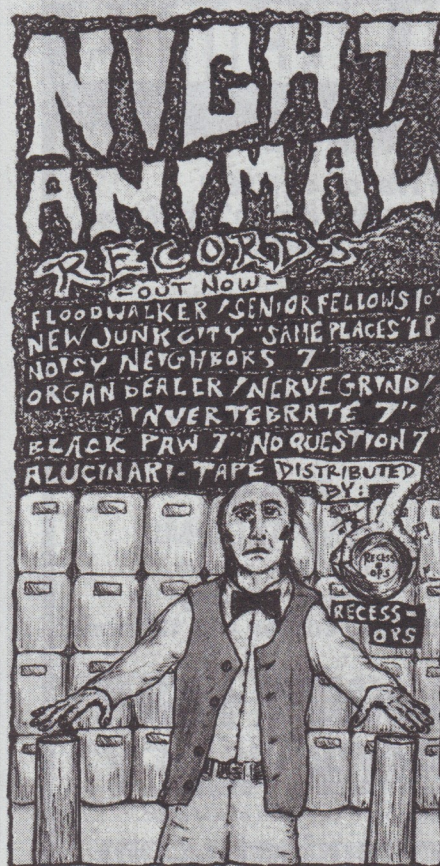 NIGHT
ANIMAL
RECORDS
-OUT NOW-
FLOODWALKER/SENIOR FELLOWS 10"
NEW JUNK CITY "SAME PLACES" LP
NOISY NEIGHBORS 7"
ORGAN DEALER/NERVE GRIND/
INVERTEBRATE 7"
BLACK PAW 7" NO QUESTION 7"
ALUCINARI-TAPE DISTRIBUTED
BY:
RECESS
OPS
RECESS-
OPS